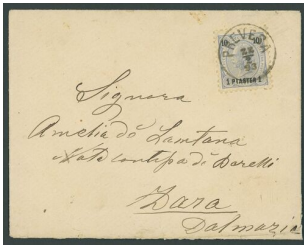 PREVESA
1 PIASTER 1
Signora
Amelia de Lantana
Nata contessa di Borelli
Zara
Dalmazia